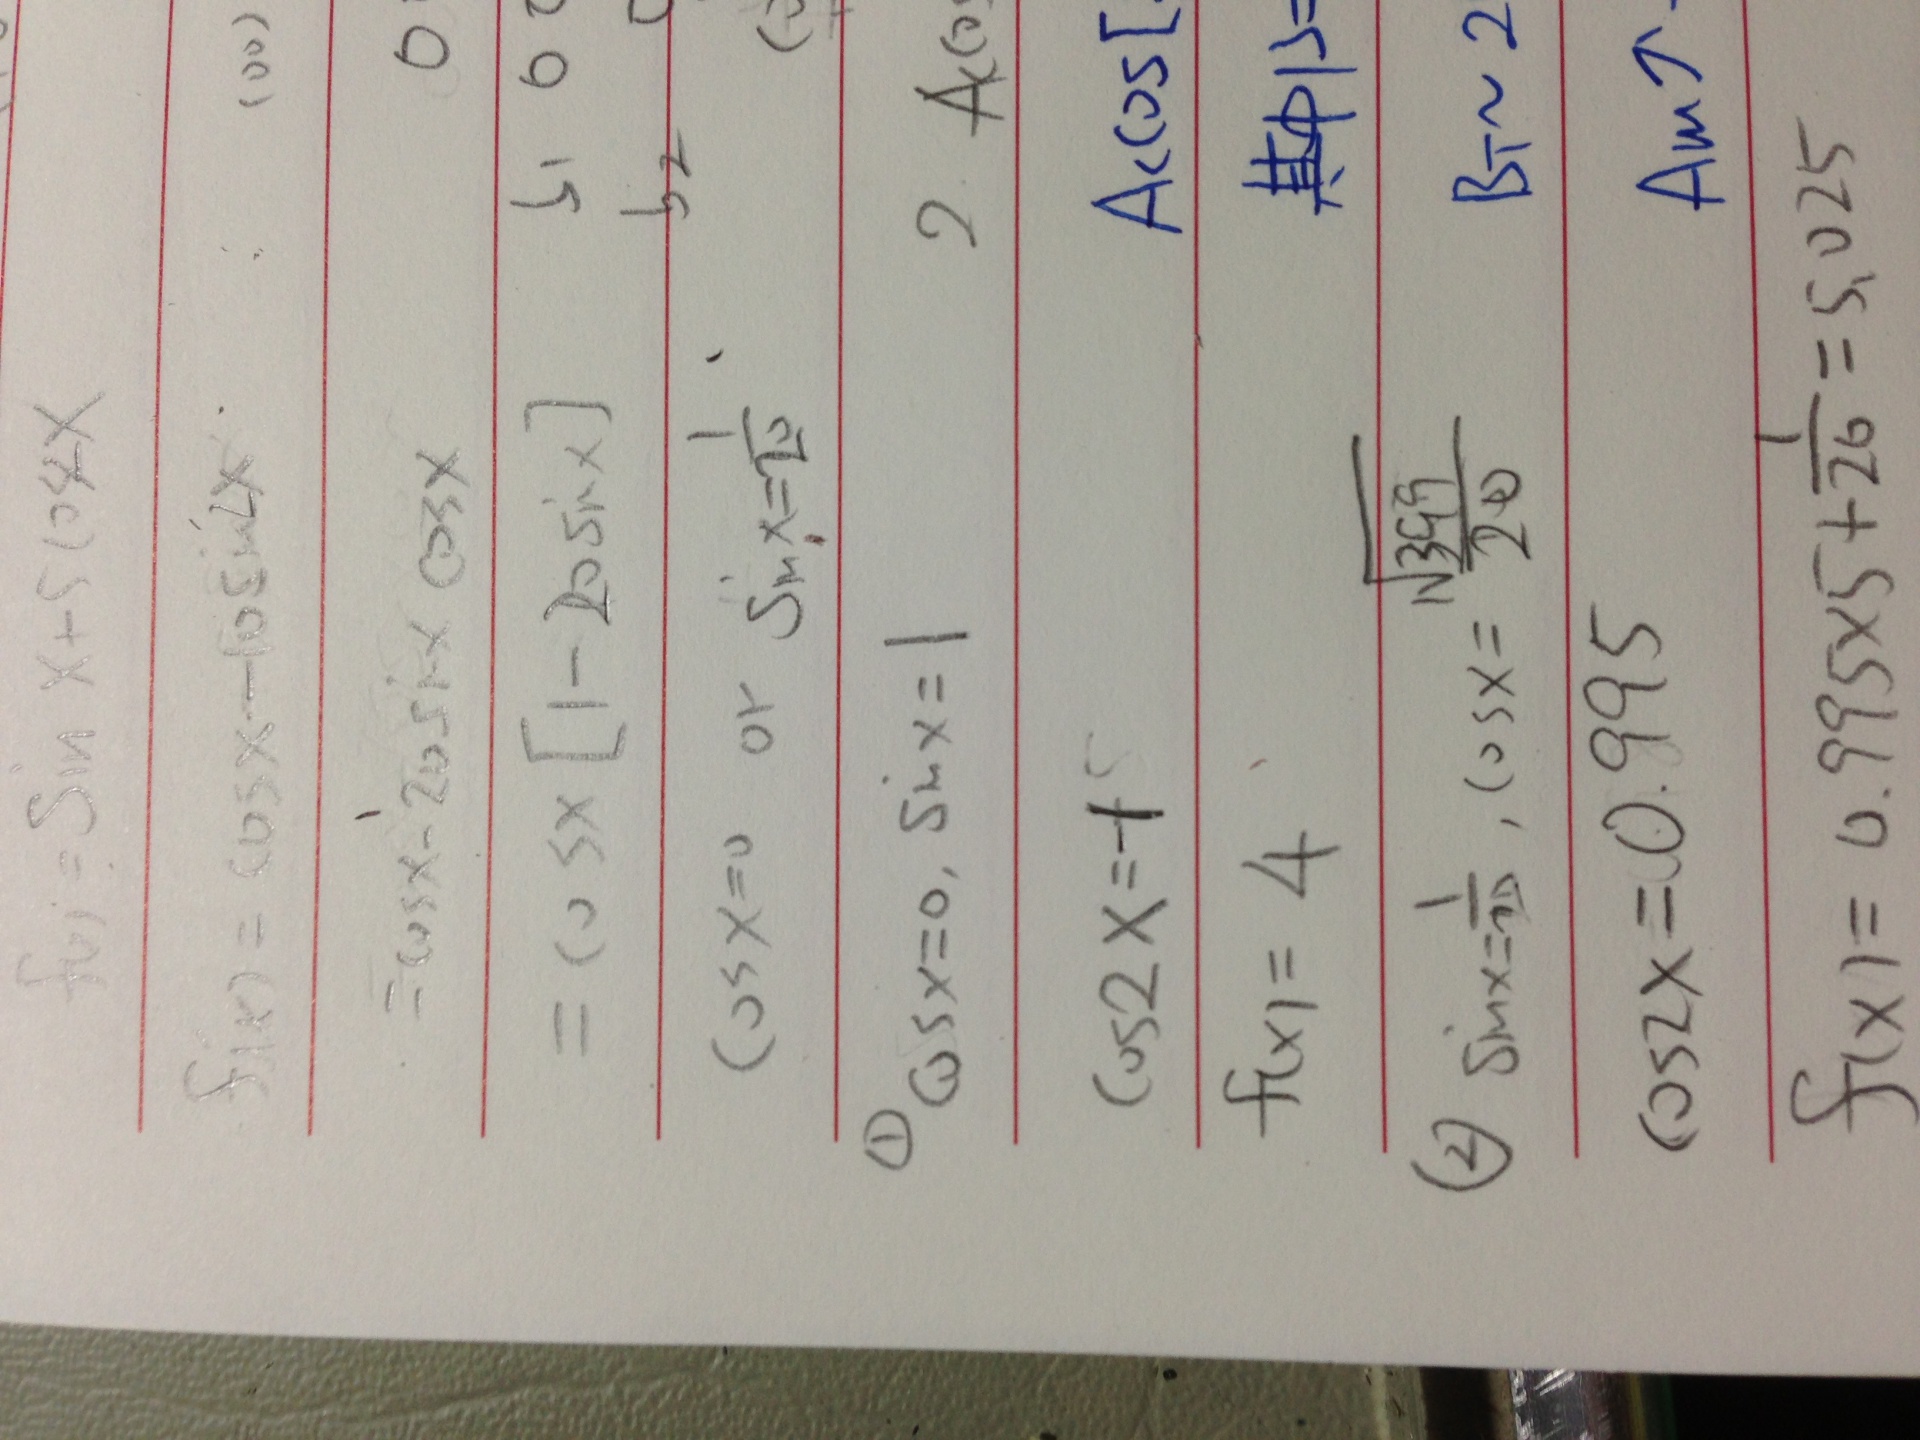 f(x) = Sin x + 5 cos2x
f'(x) = cosx - 10 sin2x
= cosx - 20 sin x cosx
= cosx [1 - 20 sin x]
cosx = 0 or sin x = 1/20
① cosx = 0, sin x = 1
cos2x = -1
f(x) = 4
(2) sin x = 1/20, cosx = √399/20
cos2x = 0.995
f(x) = 0.995x5 + 1/20 = 5.025
(00)
b1 0
b2
2. Acos
Acos[
其中β=
BT~2
Am↑